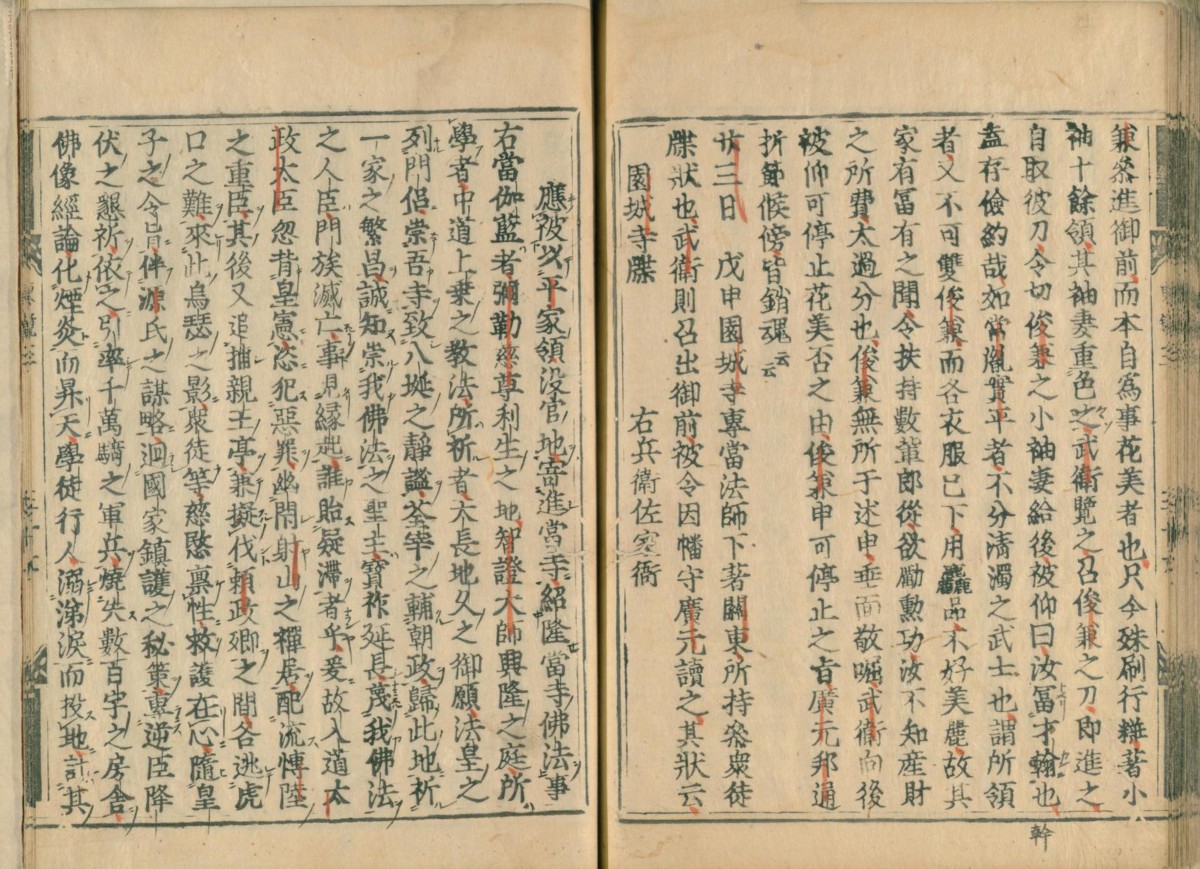 兼參進御前、而本自爲事花美者也、只今殊刷行粧、著小
袖十餘領、其袖妻重色之、武衛覽之、召俊兼之刀、即進之、
自取彼刀、令切俊兼之小袖妻給後、被仰曰、汝冨才翰也、
盍存儉約哉、如常胤實平者、不分淸濁之武士也、謂所領
者又不可雙俊兼、而各衣服已下用麁品、不好美麗、故其
家有冨有之聞、令扶持數輩郎從、欲勵勳功、汝不知産財
之所費、太過分也、俊兼無所于述申、垂面敬崛、武衛向後
被仰可停止花美否之由、俊兼申可停止之旨、廣元邦通
折節候傍、皆銷魂云云
廿三日 戊申園城寺專當法師下著關東、所持參衆徒
牒狀也、武衛則召出御前、被令因幡守廣元讀之、其狀云、
園城寺牒 右兵衛佐家衙
應被以平家領沒官地寄進當寺、紹隆當寺佛法事
右當伽藍者、彌勒慈尊利生之地、智證大師興隆之庭、所
學者中道上乘之敎法、所祈者天長地久之御願、法皇之
列門侶、崇吾寺致八埏之靜謐、荃宰之輔朝政、歸此地祈
一家之繁昌、誠知崇我佛法之聖主、寶祚延長、蔑我佛法
之人臣、門族滅亡、事見緣起、誰貽疑滯者乎、爰故入道太
政太臣忽背皇憲、恣犯惡罪、幽閇射山之禪居、配流博陸
之重臣、其後又追捕親王亭、兼擬伐賴政卿之間、各逃虎
口之難、來此烏瑟之影、衆徒等慈愍禀性、救護在心、隨皇
子之令旨、伴源氏之謀略、迴國家鎭護之秘策、重逆臣降
伏之懇祈、依之引率千萬騎之軍兵、燒失數百宇之房舍、
佛像經論、化煙炎而昇天、學徒行人、溺涕淚而投地、計其
幹